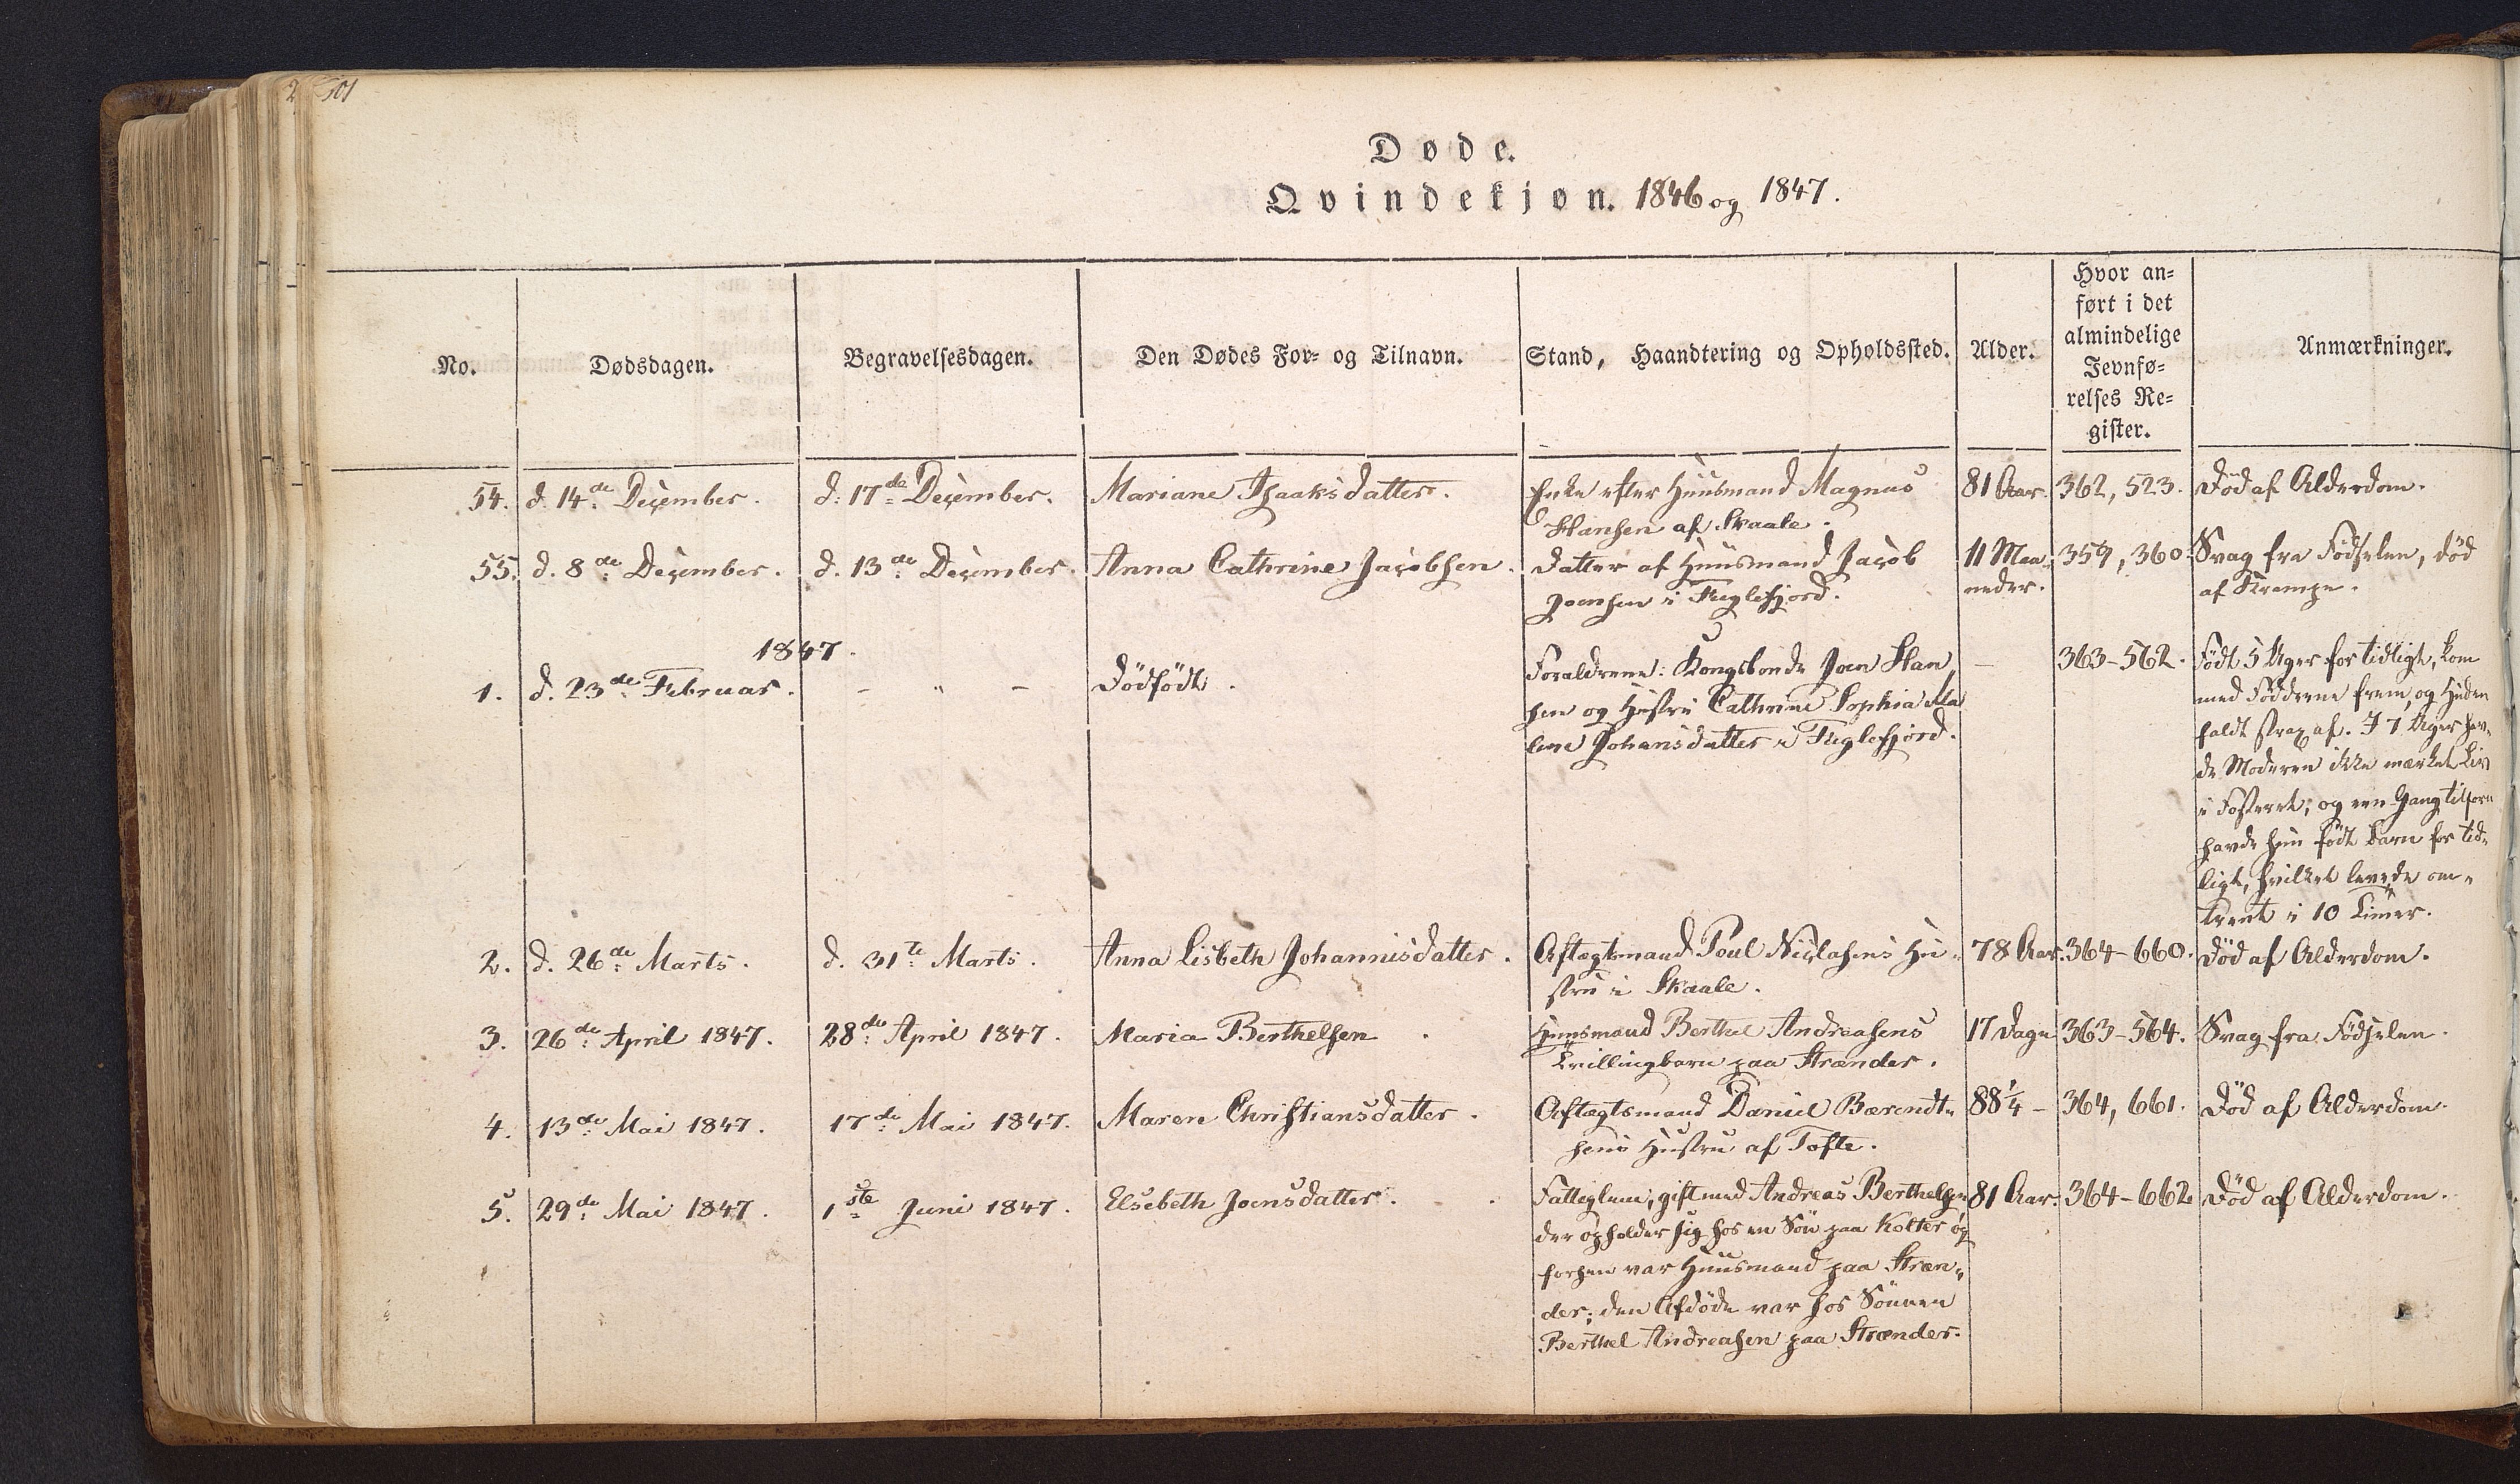 501
Døde.
Qvindekjøn. 1846 og 1847.
No.
Dødsdagen.
Begravelsesdagen.
Den Dødes For- og Tilnavn.
Stand, Haandtering og Opholdssted.
Alder.
Hvor an-
ført i det
almindelige
Jevnfø-
relses Re-
gister.
Anmærkninger.
54. d. 14de December. d: 17de December. Mariane Isaaksdatter. Enke efter Huusmand Magnus 81 Aar. 362, 523. Död af Alderdom.
Hansen af Skaale.
55. d. 8de December. d. 13de December. Anna Cathrine Jacobsen. Datter af Huusmand Jacob 11 Maa- 359, 360. Svag fra Födselen, död
Joensen i Fuglefjord. neder. af Krampe.
1847.
1. d. 23de Februar. - " - Dödfödt. Forældrene: Kongsbonde Joen Han - 363-562. Födt 5 Uger for tidligt, kom
sen og Hustru Cathrine Sophia Ma med Födderne frem, og Huden
lene Johansdatter i Fuglefjord. faldt strax af. I 7 Uger hav-
de Moderen ikke mærket Liv
i Fosteret; og een Gang tilforn
havde hun födt Barn for tid-
ligt, hvilket levede om-
trent i 10 Timer.
2. d. 26de Marts. d. 31te Marts. Anna Lisbeth Johannisdatter. Aftægtsmand Poul Niclasens Hu- 78 Aar. 364-660. Död af Alderdom.
stru i Skaale.
3. 26de April 1847. 28de April 1847. Maria Berthelsen. Huusmand Berthel Andreasens 17 Dage 363-564. Svag fra Födselen.
Tvillingbarn paa Strænder.
4. 13de Mai 1847. 17de Mai 1847. Maren Christiansdatter. Aftægtsmand Daniel Bærendt- 88 1/4 - 364, 661. Död af Alderdom.
sens Hustru af Tofte.
5. 29de Mai 1847. 1ste Juni 1847. Elsebeth Joensdatter. Fattiglem, gift med Andreas Berthelsen 81 Aar. 364-662 Död af Alderdom.
der opholder sig hos en Sön paa Kolter og
forhen var Huusmand paa Stræn-
der; den Afdöde var hos Sönnen
Berthel Andreasen paa Strænder.